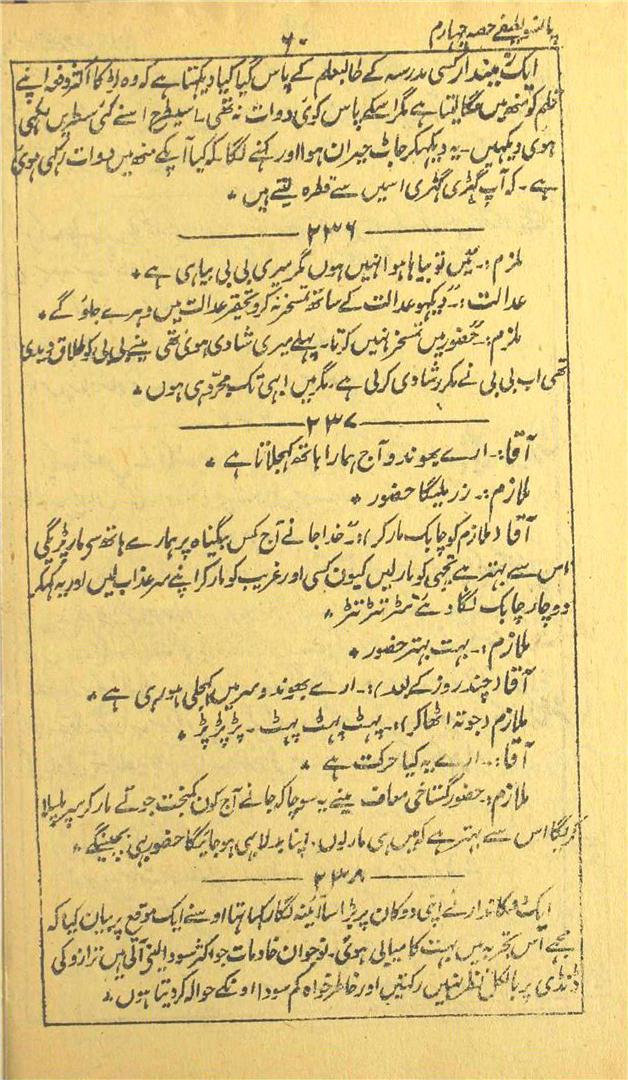 پانسو لطیفے حصہ چہارم
۶۰
ایک زمیندار کسی مدرسہ کے طالبعلم کے پاس گیا کیا دیکھتا ہے کہ وہ لڑکا اکثر دفعہ اپنے
قلم کو منھ میں لگا لیتا ہے مگر اسکے پاس کوئی دوات نہ تھی ۔ اسیطرح اسنے کئی سطریں لکھی
ہوئی دیکھیں ۔ یہ دیکھکر جاٹ حیران ہوا اور کہنے لگا کہ کیا آپکے منھ میں دوات رکھی ہوئی
ہے ۔ کہ آپ گھڑی گھڑی اسمیں سے قطرہ لیتے ہیں *
۲۳۶
ملزم :۔ میں تو بیاہا ہوا نہیں ہوں مگر میری بی بی بیاہی ہے *
عدالت :۔ دیکھو عدالت کے ساتھ تمسخر نہ کرو تحقیر عدالت میں دہرے جاؤ گے *
ملزم :۔ حضور میں تمسخر نہیں کرتا ۔ پہلے میری شادی ہوئی تھی مینے بی بی کو طلاق دیدی
تھی اب بی بی نے مکرر شادی کرلی ہے ۔ مگر میں ابھی تک مجرد ہی ہوں *
۲۳۷
آقا :۔ ارے بھوندو آج ہمارا ہاتھ کھجلاتا ہے *
ملازم :۔ زر ملیگا حضور *
آقا (ملازم کو چابک مار کر) :۔ خدا جانے آج کس بیگناہ پر ہمارے ہاتھ سی مار پڑیگی
اس سے بہتر ہے تجہی کو مار لیں کیوں کسی اور غریب کو مار کر اپنے سر عذاب لیں اور یہ کہکر
دو چار چابک لگا دئے تڑ تڑ تڑ تڑ *
ملازم :۔ بہت بہتر حضور *
آقا (چند روز کے بعد) :۔ ارے بھوندو سر میں کھجلی ہو رہی ہے *
ملازم (جوتہ اٹھا کر) :۔ پہٹ پہٹ پہٹ ۔ پڑ پڑ پڑ *
آقا :۔ ارے یہ کیا حرکت ہے *
ملازم :۔ حضور گستاخی معاف مینے یہ سوچا کہ جانے آج کون کمبخت جوتے مار کر سر پلپلا
کریگا اس سے بہتر ہے کہ میں ہی مار لوں ۔ اپنا بدلا ہی ہو جائیگا حضور ہی بچینگے *
۲۳۸
ایک دوکاندار نے اپنی دوکان پر بڑا سا آئینہ لگا رکہا تہا اوسنے ایک موقع پر بیان کیا کہ
مجھے اس تجربہ میں بہت کامیابی ہوئی ۔ نوجوان خادمات جو اکثر سودا لینے آتی ہیں ترازو کی
ڈنڈی پر بالکل نظر نہیں رکہتیں اور خاطر خواہ کم سودا اونکے حوالہ کردیتا ہوں *